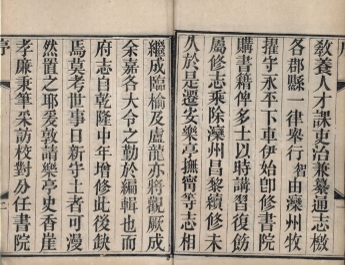 教養人才課吏治兼纂通志檄
各郡縣一律舉行智由灤州牧
擢守永平下車伊始卽修書院
購書籍俾多士以時講習復飭
屬修志乘除灤州昌黎續修未
久於是遷安樂亭撫甯等志相
繼成臨榆及盧龍亦將觀厥成
余嘉各大令之勤於編輯也而
府志自乾隆中年增修此後缺
焉莫考世事日新守土者可漫
然置之耶爰敦請樂亭史香崖
孝廉秉筆采訪校對分任書院
序